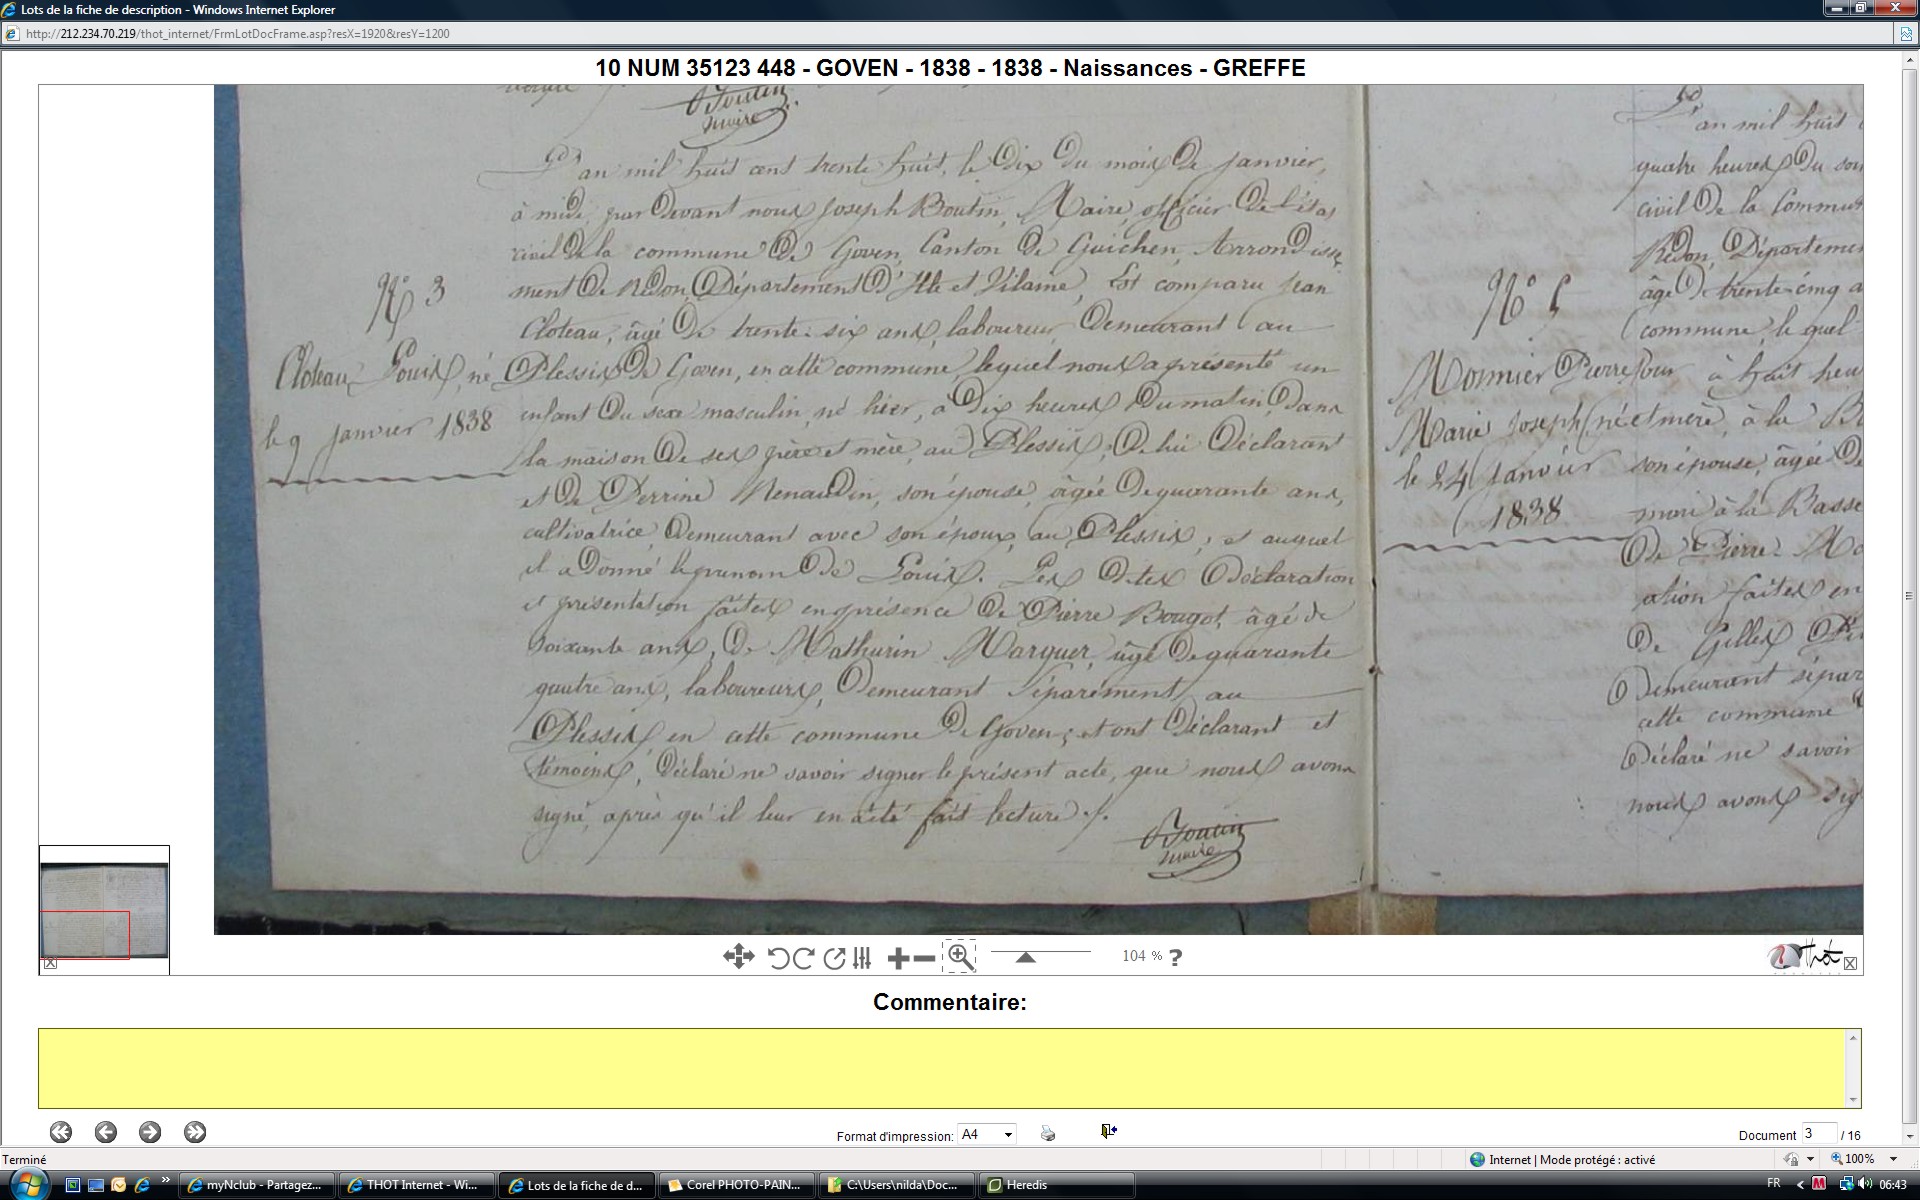 Lots de la fiche de description - Windows Internet Explorer
http://212.234.70.219/thot_internet/FrmLotDocFrame.asp?resX=1920&resY=1200
10 NUM 35123 448 - GOVEN - 1838 - 1838 - Naissances - GREFFE
Boutin
maire
L'an mil huit cent trente huit, le dix du mois de janvier,
à midi, par devant nous Joseph Boutin, Maire, officier de l'état
civil de la commune de Goven, Canton de Guichen, Arrondisse-
ment de Redon, Département d'Ille et Vilaine, Est comparu Jean
Cloteau, âgé de trente-six ans, laboureur, demeurant au
Plessix de Goven, en cette commune, lequel nous a présenté un
enfant du sexe masculin, né hier, à dix heures du matin, dans
la maison de ses père et mère, au Plessix, de lui déclarant
et de Perrine Menaudin, son épouse, âgée de quarante ans,
cultivatrice, demeurant avec son époux, au Plessix; et auquel
il a donné le prénom de Louis. Les dites déclaration
et présentation faites en présence de Pierre Bougot, âgé de
soixante ans, de Mathurin Marquer, âgé de quarante
quatre ans, laboureurs, demeurant séparément au
Plessix, en cette commune de Goven; et ont déclarant et
témoins, déclaré ne savoir signer le présent acte, que nous avons
signé, après qu'il leur en a été fait lecture ./.
Boutin
maire
N° 3
Cloteau Louis, né
le 9 janvier 1838
N° 5
Monnier Pierre
Marie Joseph né
le 24 janvier
1838
L'an mil huit
quatre heures du
civil de la Commun
Redon, Département
âgé de trente-cinq a
commune, lequel
jour à huit heu
et mère, à la
son épouse, âgée de
mari à la Basse
de Pierre
ation faites en
de Gilles
demeurant sépar
cette commune
déclaré ne savoir
nous avons sig
104 % ?
Thot
Commentaire:
Format d'impression: A4
Document 3 / 16
Terminé
Internet | Mode protégé : activé
100%
myNclub - Partagez...
THOT Internet - Wi...
Lots de la fiche de d...
Corel PHOTO-PAIN...
C:\Users\nilda\Doc...
Heredis
FR
06:43